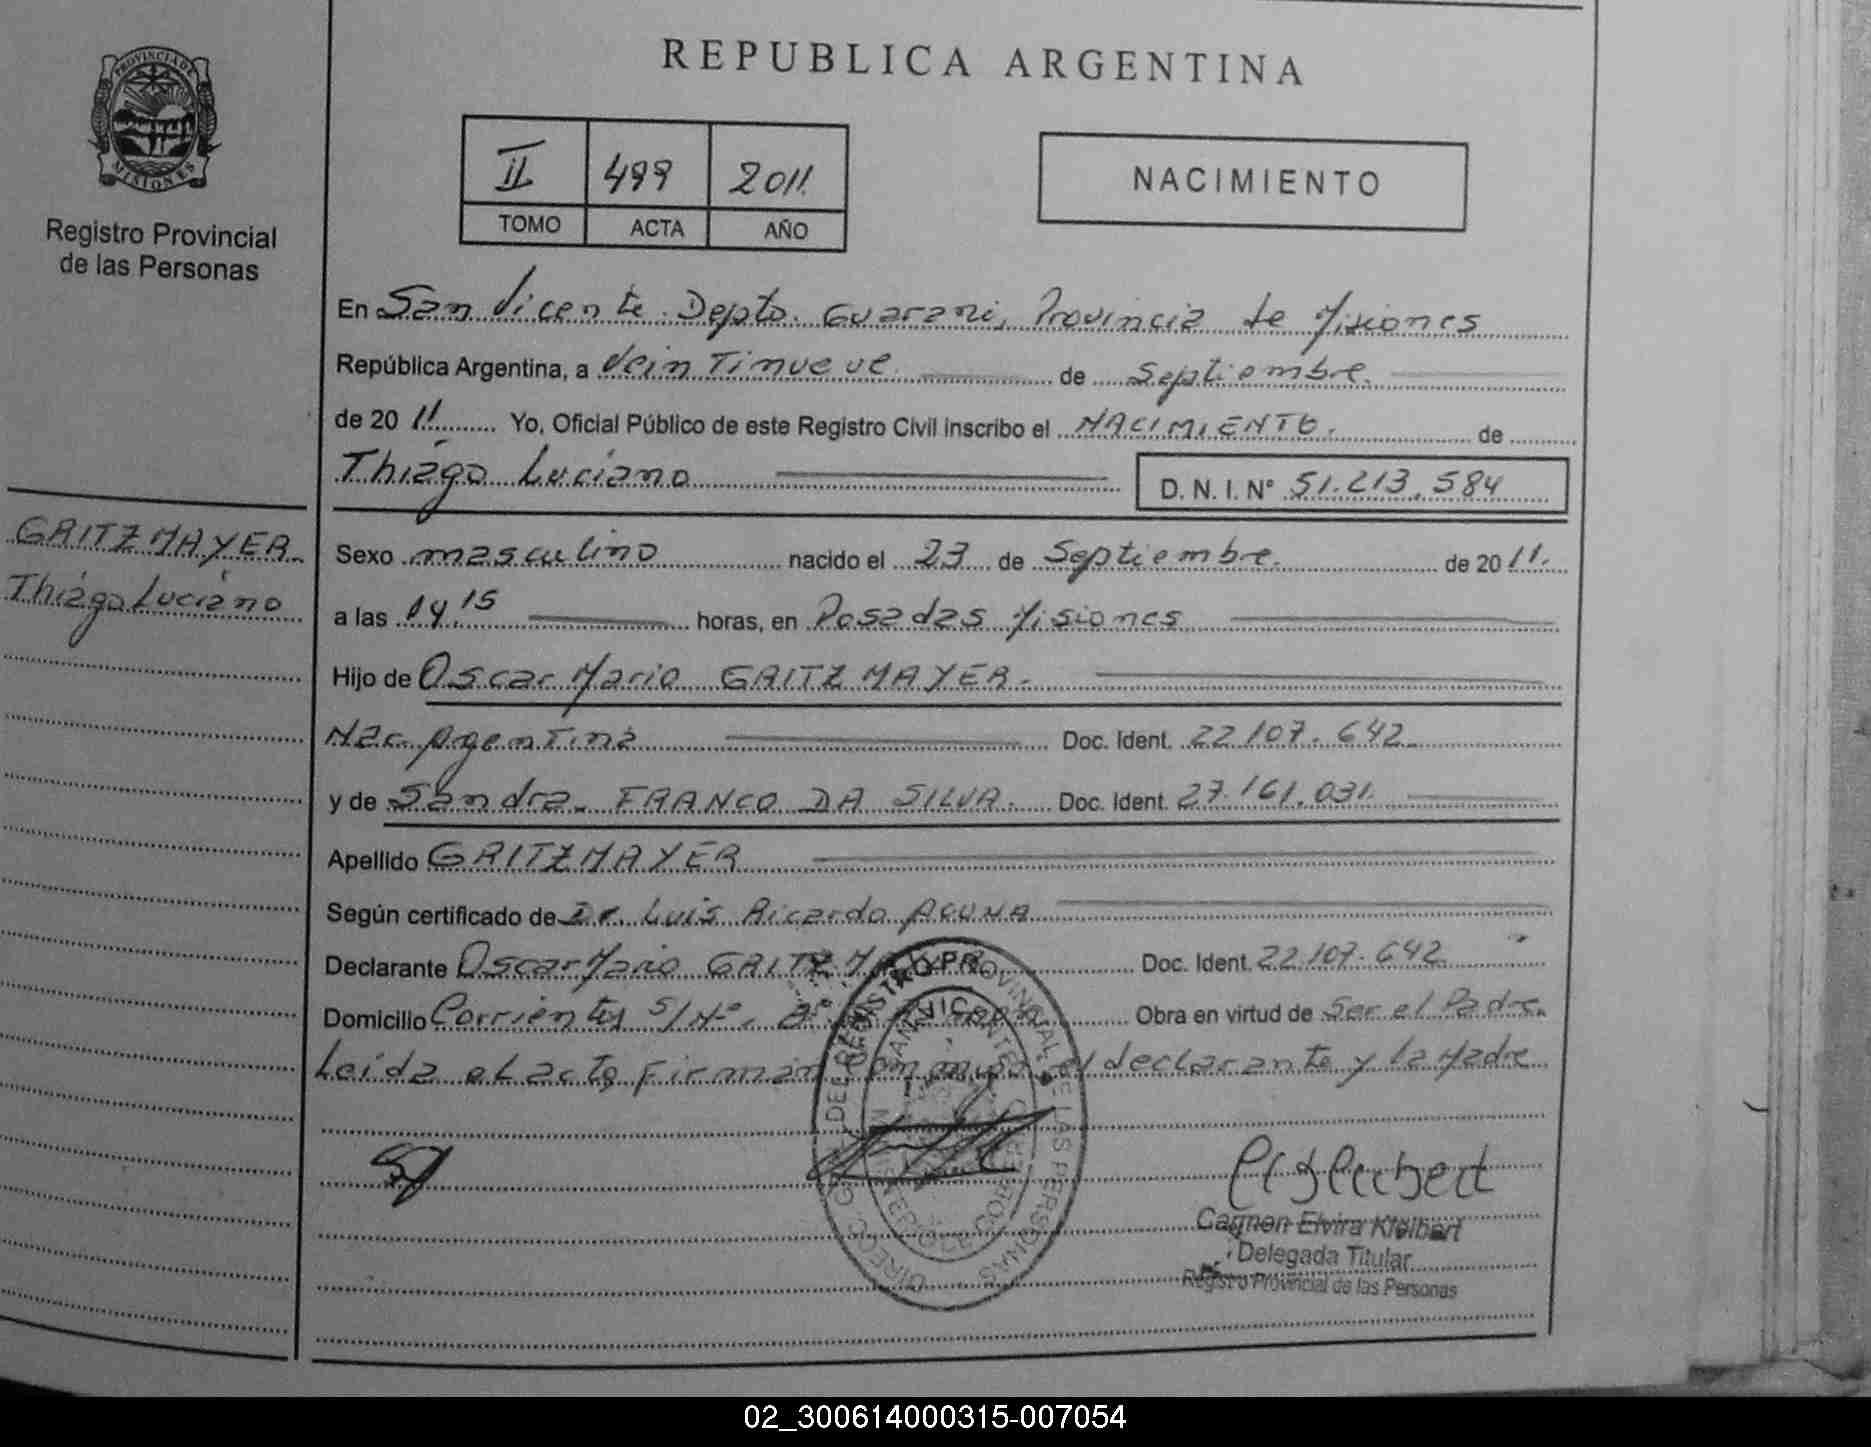 REPUBLICA ARGENTINA
PROVINCIA DE
MISIONES
Registro Provincial
de las Personas
II 499 2011.
TOMO ACTA AÑO
NACIMIENTO
En San Vicente. Depto. Guarani, Provincia de Misiones
República Argentina, a Veintinueve de Septiembre.
de 20 11. Yo, Oficial Público de este Registro Civil inscribo el NACIMIENTO. de
Thiago Luciano D. N. I. N° 51.213.584
GRITZMAYER
Thiago Luciano
Sexo masculino nacido el 23 de Septiembre. de 20 11.
a las 14.15 horas, en Posadas Misiones
Hijo de Oscar Mario GRITZMAYER.
Nac. Argentina Doc. Ident. 22.107.642
y de Sandra FRANCO DA SILVA. Doc. Ident. 27.161.031
Apellido GRITZMAYER
Según certificado de Dr. Luis Ricardo ACUNA
Declarante Oscar Mario Doc. Ident. 22.107.642
Domicilio Corrientes S/N°. Obra en virtud de Ser el Padre.
Leida el acta firman el declarante y la Madre
DIREC. GRAL. DEL REGISTRO PROVINCIAL DE LAS PERSONAS
SAN VICENTE
Carmen Elvira Kleibert
Delegada Titular
Registro Provincial de las Personas
02_300614000315-007054